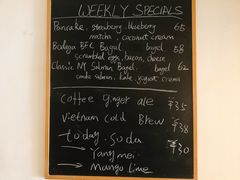 WEEKLY SPECIALS
Pancake, strawberry, blueberry 65
matcha, coconut cream
Bodega BEC Bagel, bagel 58
scrambled eggs, bacon, cheese
Classic NY Salmon Bagel, bagel 62
smoke salmon, kale, yogurt cream
coffee ginger ale ¥35
Vietnam Cold Brew ¥38
today. soda ¥30
→ Yangmei
→ Mango Lime